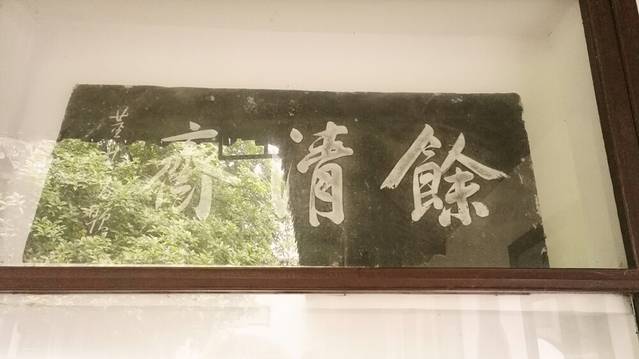 餘清齋